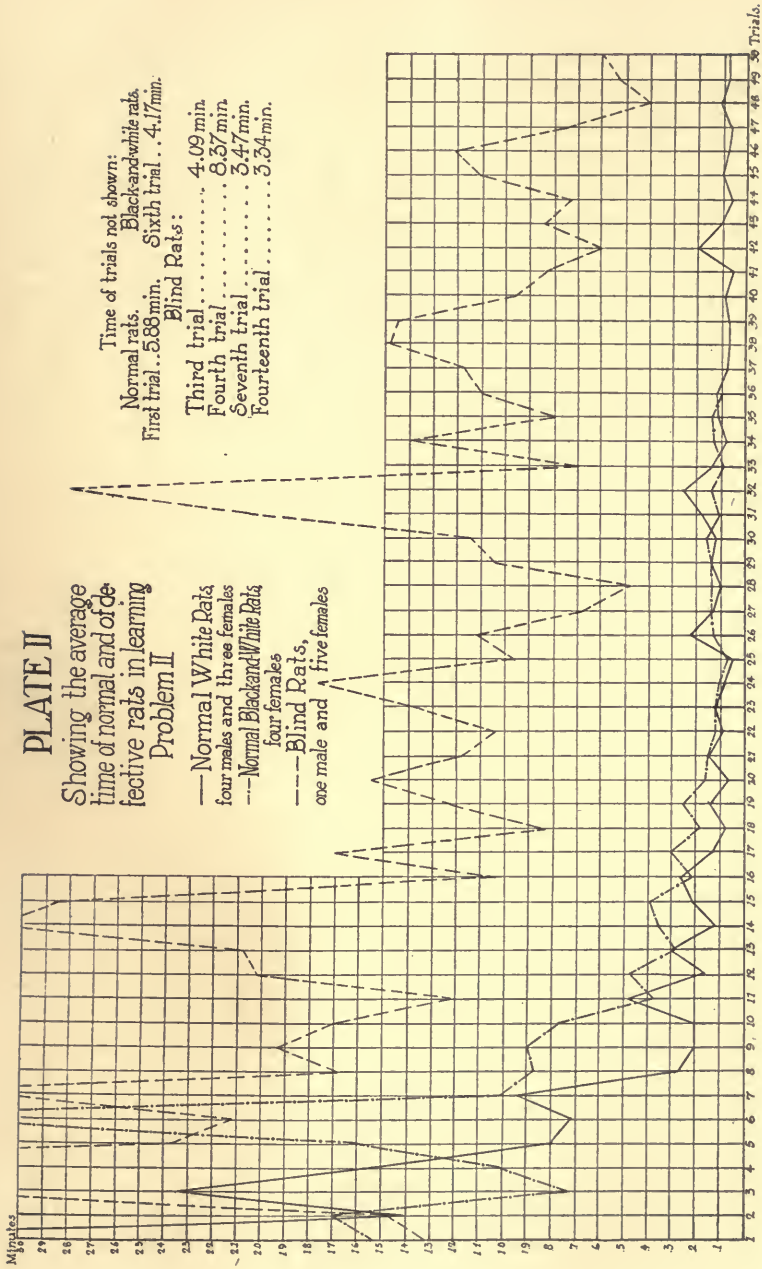 PLATE II
Showing the average
time of normal and of de-
fective rats in learning
Problem II
Normal White Rats,
four males and three females
Normal Black-and-White Rats,
four females
Blind Rats,
one male and five females
Time of trials not shown:
Normal rats. Black-and-white rats.
First trial..5.88min. Sixth trial..4.17min.
Blind Rats:
Third trial.......... 4.09 min.
Fourth trial......... 8.37 min.
Seventh trial........ 3.47min.
Fourteenth trial....... 3.34min.
Minutes
30
29
28
27
26
25
24
23
22
21
20
19
18
17
16
15
14
13
12
11
10
9
8
7
6
5
4
3
2
1
1 2 3 4 5 6 7 8 9 10 11 12 13 14 15 16 17 18 19 20 21 22 23 24 25 26 27 28 29 30 31 32 33 34 35 36 37 38 39 40 41 42 43 44 45 46 47 48 49 50 Trials.